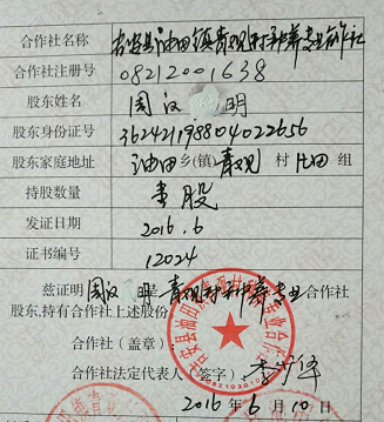 合作社名称 吉安县油田镇青观村种养专业合作社
合作社注册号 08212001638
股东姓名 周汉明
股东身份证号 362421198804022656
股东家庭地址 油田乡(镇)青观村 组
持股数量 壹股
发证日期 2016.6
证书编号 12024
兹证明 周汉明 是 青观村种养专业合作社
股东,持有合作社上述股份
合作社(盖章)
合作社法定代表人(签字):李
2016年6月10日